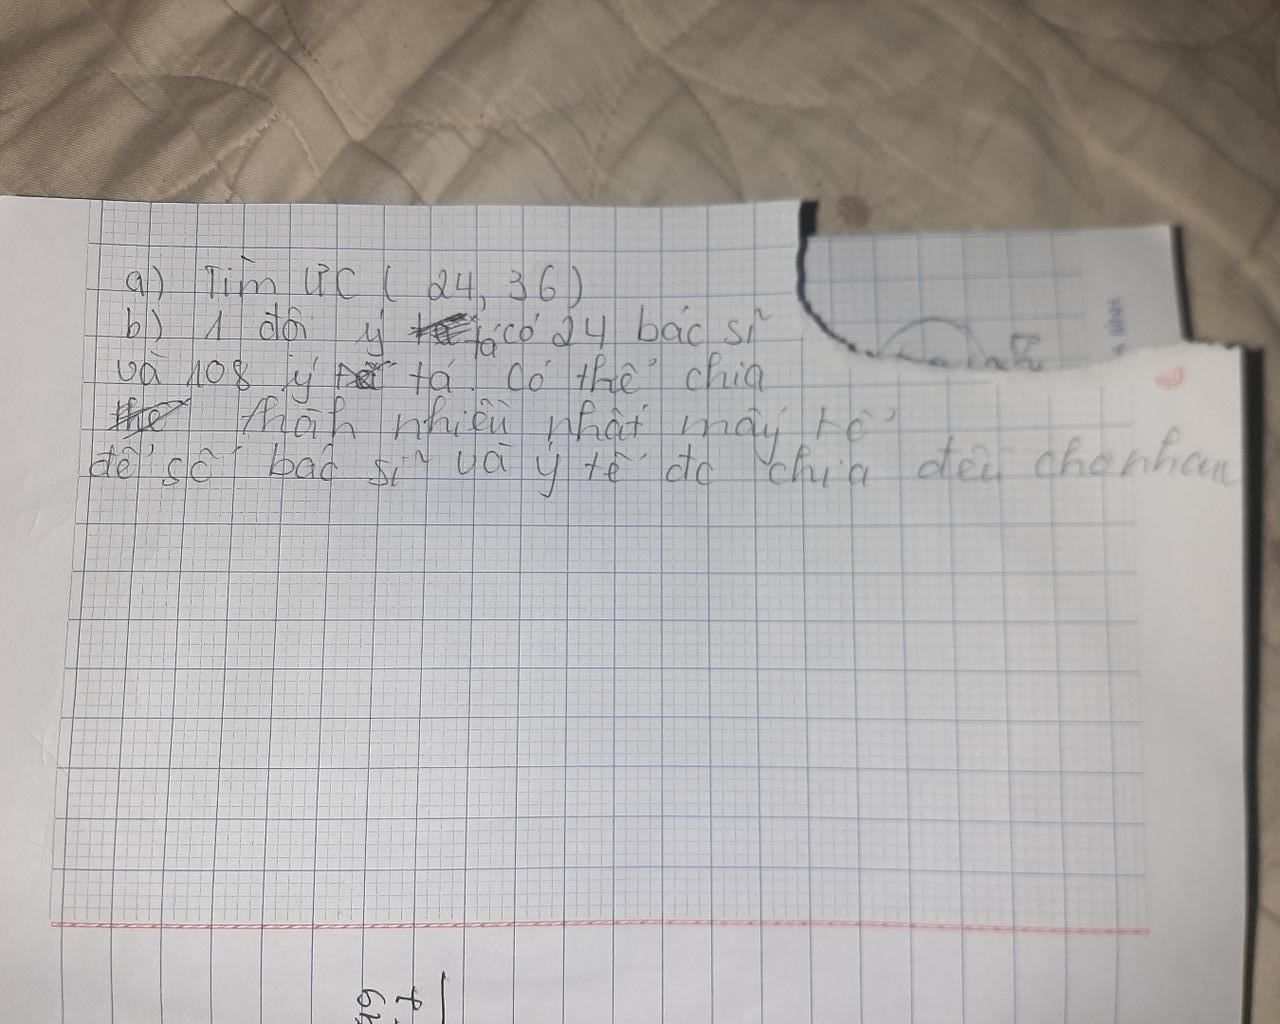 a) Tìm ƯC ( 24, 36 )
b) 1 đội y tá có 24 bác sĩ
và 108 y tá. Có thể chia
thành nhiều nhất mấy tổ
để số bác sĩ và y tế đc chia đều cho nhau